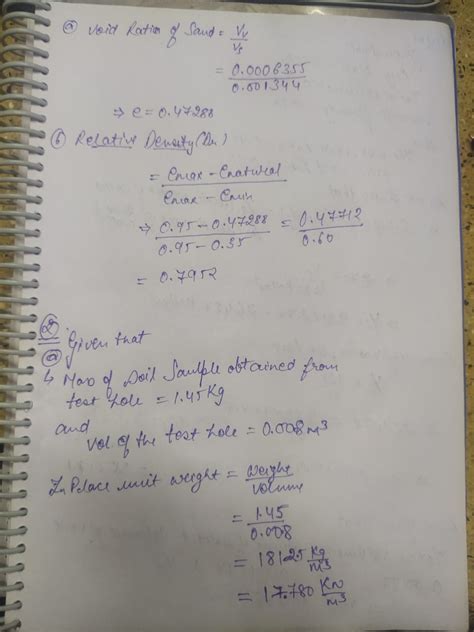 ⓐ Void Ration of Sand = Vv/Vs
= 0.0006355/0.001344
⇒ e = 0.47288
ⓑ Relative Density (Dr)
= emax - enatural/emax - emin
⇒ 0.95 - 0.47288/0.95 - 0.35 = 0.47712/0.60
= 0.7952
②
Given that
ⓐ
↳ Mass of Soil Sample obtained from
test hole = 1.45 Kg
and
Vol. of the test hole = 0.008 m³
In Place unit weight = Weight/Volume
= 1.45/0.008
= 181.25 Kg/m³
= 17.780 KN/m³